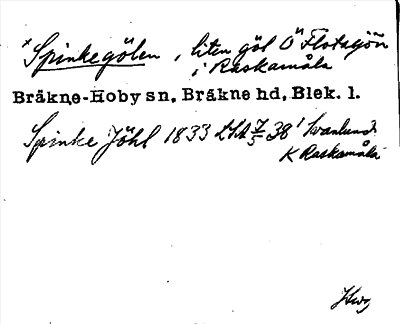 *Spinkegölen, liten göl Ö Flotasjön
i Raskamåla
Bräkne-Hoby sn, Bräkne hd, Blek. l.
Spinke Jöhl 1833 LSA 7/5 38' Svanlund.
K Raskamåla